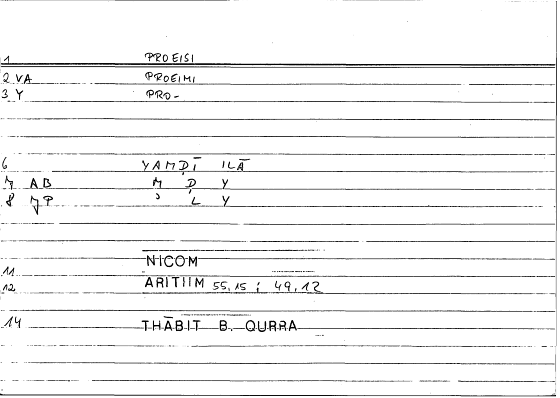 1 PROEISI
2 VA PROEIMI
3 Y PRO-
6 YAMḌĪ ILĀ
7 AB M Ḍ Y
8 ʾ L Y
11 NICOM
12 ARITIIM 55,15 ; 49,12
14 THĀBIT B. QURRA